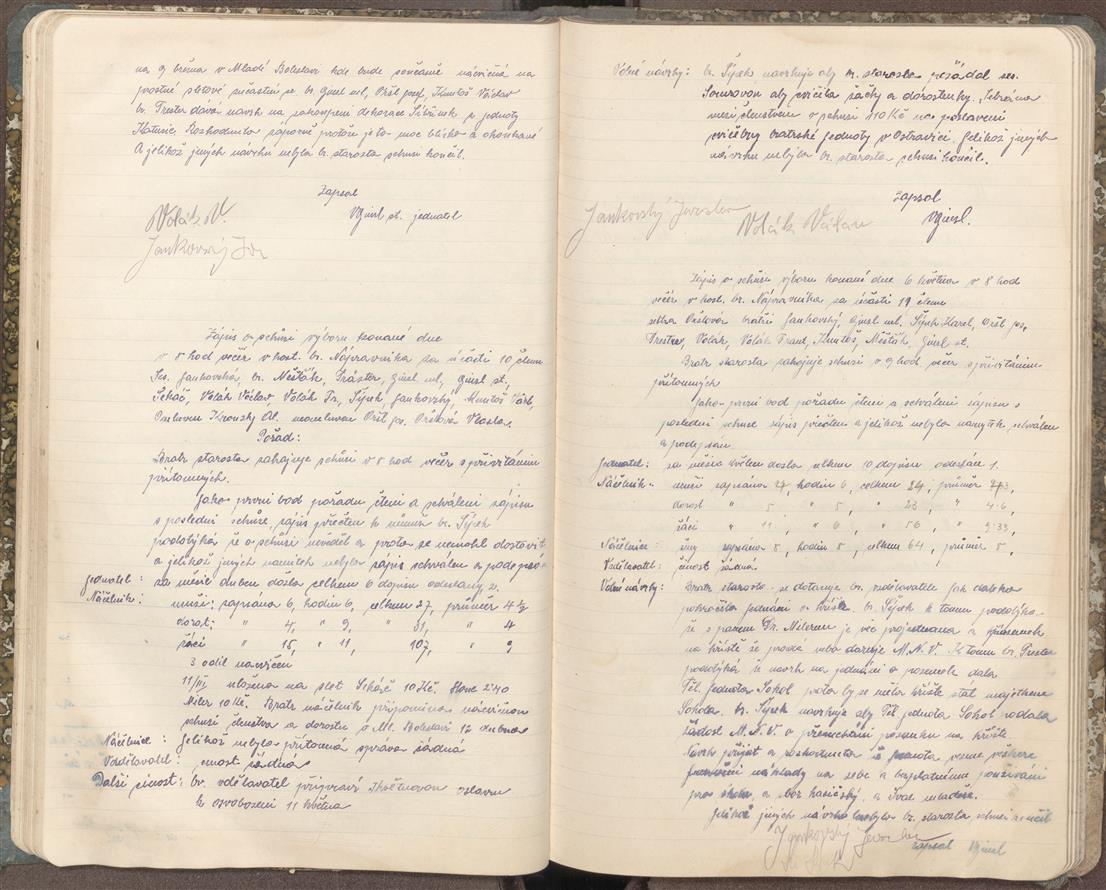 na 9 března v Mladé Boleslavi kde bude současně nácvičná na
prostné sletové súčastní se br. Ginzl ml, Oršl Josef, Kuntoš Václav
br. Trester dává návrh na zakoupení dekorace Jižňák z jednoty
Katusic. Rozhodnuto záporně protože je to moc blízko a okoukané
A jelikož jiných návrhů nebylo br. starosta schusi končil.
Zapsal
Volák V.
Vginzl st. jednatel
Jankovský Jar
Zápis o schůzi výboru konané dne
v 8 hod večer v host. br. Nápravníka za účasti 10 členů
Ses. Jankovská, br. Nešták, Tráster, Ginzl ml, Ginzl st,
Sekáč, Volák Václav Volák Fr, Šípek, Jankovský, Kuntoš Václ,
Omluven Kronský Ol. neomluven Oršl Jos. Oršlová Vlasta.
Pořad:
Bratr starosta zahajuje schůzi v 8 hod večer s přivítáním
přítomných.
Jako první bod pořadu čtení a schválení zápisu
s poslední schůze, zápis přečten k němuž br. Šípek
podotýká že o schůzi nevěděl a proto se nemohl dostavit
a jelikož jiných námitek nebylo zápis schválen a podepsán
Jednatel: za měsíc duben došlo celkem 6 dopisů odeslány 2.
Náčelník: muži: zapsáno 6, hodin 6, celkem 27, průměr 4 ½
dorost: " 4, " 9, " 31, " 4
žáci " 15, " 11, 107, " 9
3 odil navíčení
11/III uloženo na slet Sekáč 10 Kč. 2.40
Miler 10 Kč. Bratr náčelník připomíná náčelnou
schusi členstva a dorostu v Ml. Boleslavi 12 dubna
Náčelnice: Jelikož nebyla přítomná zpráva žádná
Vzdělavatel: činost žádná
Další činost: br. vzdělavatel připraví Květnovou oslavu
k osvobození 11 května
Volné návrhy: br. Šípek navrhuje aby br. starosta požádal ses.
aby cvičila žačky a dorostenky. Sebráno
mezi členstvem v schusi 410 Kč na postavení
cvičebny bratrské jednoty v Ostravici. Jelikož jiných
návrhu nebylo br. starosta schusi končil.
Zapsal
Jankovský Jaroslav
Volák Václav
Vginzl.
Zápis o schůzi výboru konané dne 6 května v 8 hod
večer v host. br. Nápravníka za účasti 11 členů
sestra Oršlová bratři Jankovský, Ginzl ml. Šípek Karel, Oršl Jos,
Trestr, Volák, Volák Frant, Kuntoš, Nešták, Ginzl st.
Bratr starosta zahajuje schůzi v 9 hod večer s přivítáním
přítomných
Jako první bod pořadu čtení a schválení zápisu s
poslední schuse zápis přečten a jelikož nebylo námitek schválen
a podepsán.
Jednatel: za měsíc květen došlo celkem 10 dopisu odesláno 1.
Náčelník: muži zapsáno 7, hodin 6, celkem 24, průměr
dorost " 5 " 5, " 23 " 4.6,
žáci " 11, " 6 " 56, " 9.33,
Náčelnice: ženy zapsáno 8, hodin 8, celkem 64, průměr 8,
Vzdělavatel: činost žádná
Volné návrhy: Bratr starosta se dotazuje br. vzdělavatele jak daleko
pokročilo jednání o hřiště br. Šípek k tomu podotýká
že s panem Dr. Milerem je věc projednána a pozemek
na hřiště se prodá nebo daruje M.N.V. K tomu br. Trester
podotýká že navrh na jednání o pozemek dala
Těl. Jednota Sokol proto by se mělo hřiště stát majetkem
Sokola. br. Šípek navrhuje aby Těl. jednota Sokol podala
žádost M.N.V. o přenechání pozemku na hřiště.
Navrh přijat a rozhodnuto že jednota veme veškere
náklady na sebe a bezplatnému používání
pro školu, a sbor hasičský, a Svaz mládeže.
Jelikož jiných návrhu nebylo br. starosta schusi končil
Jankovský Jaroslav
zapsal Vginzl